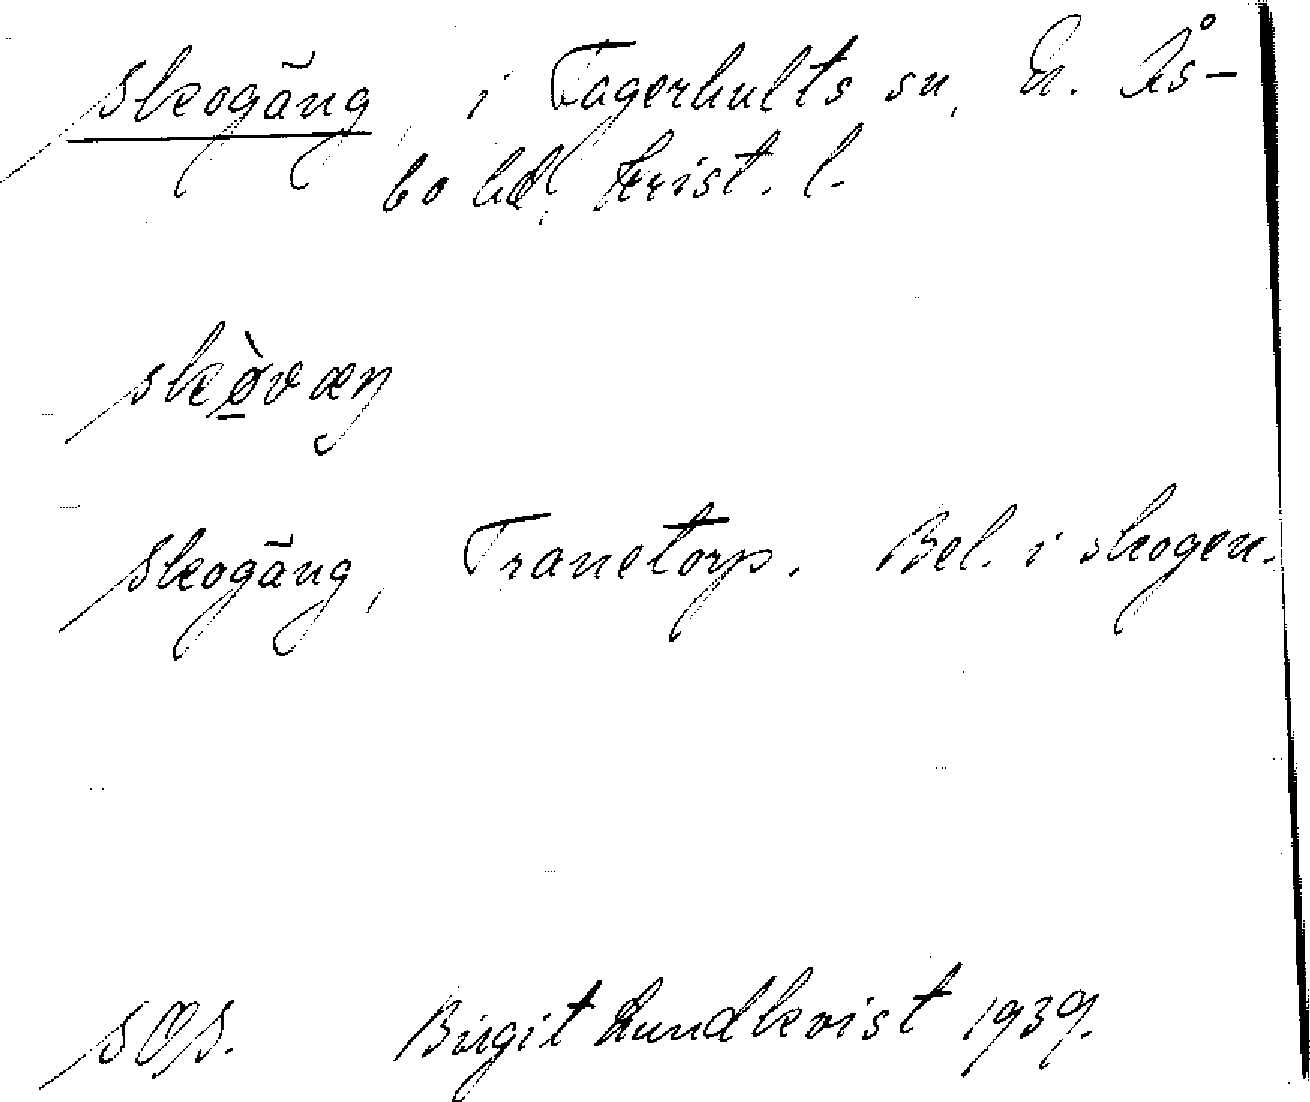 Skogäng, i Fagerhults sn, N. Ås-
bo hd, Krist. l.
skø̀væŋ
Skogäng, Tranetorp. Bel. i skogen.
SOS. Birgit Lundkvist 1939.